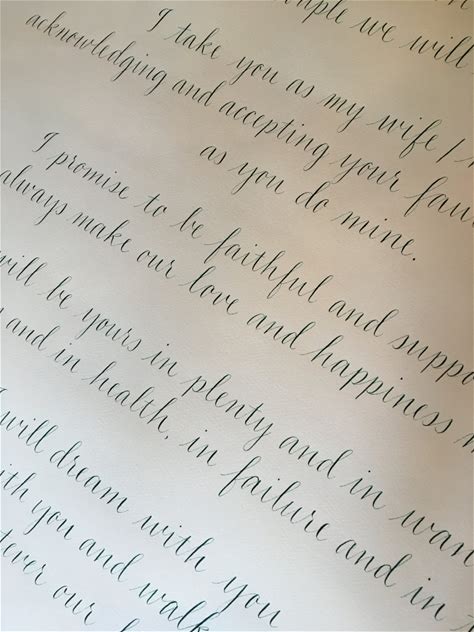 we will
I take you as my wife /
acknowledging and accepting your
as you do mine.
I promise to be faithful and
always make our love and happiness
will be yours in plenty and in
and in health, in failure and in
will dream with you
you and walk
our